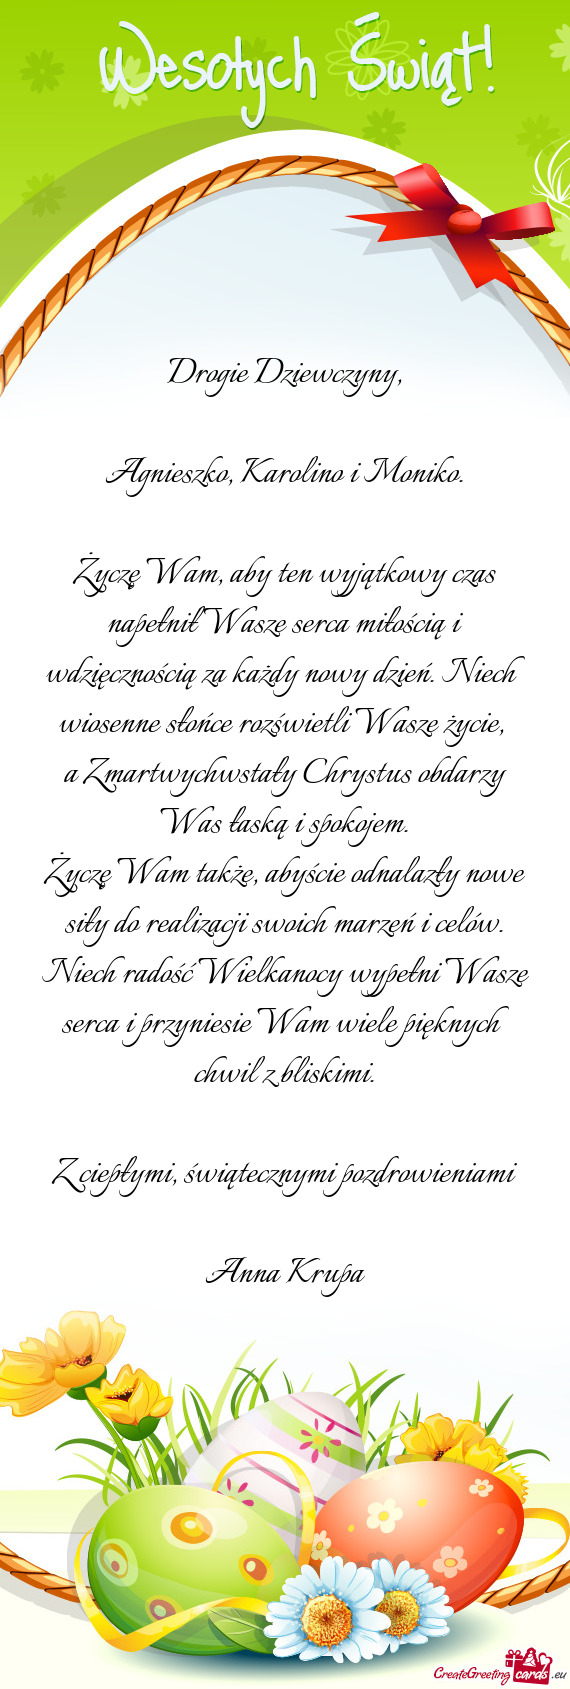 Wesołych Świąt!
Drogie Dziewczyny,
Agnieszko, Karolino i Moniko.
Życzę Wam, aby ten wyjątkowy czas
napełnił Wasze serca miłością i
wdzięcznością za każdy nowy dzień. Niech
wiosenne słońce rozświetli Wasze życie,
a Zmartwychwstały Chrystus obdarzy
Was łaską i spokojem.
Życzę Wam także, abyście odnalazły nowe
siły do realizacji swoich marzeń i celów.
Niech radość Wielkanocy wypełni Wasze
serca i przyniesie Wam wiele pięknych
chwil z bliskimi.
Z ciepłymi, świątecznymi pozdrowieniami
Anna Krupa
CreateGreetingcards.eu